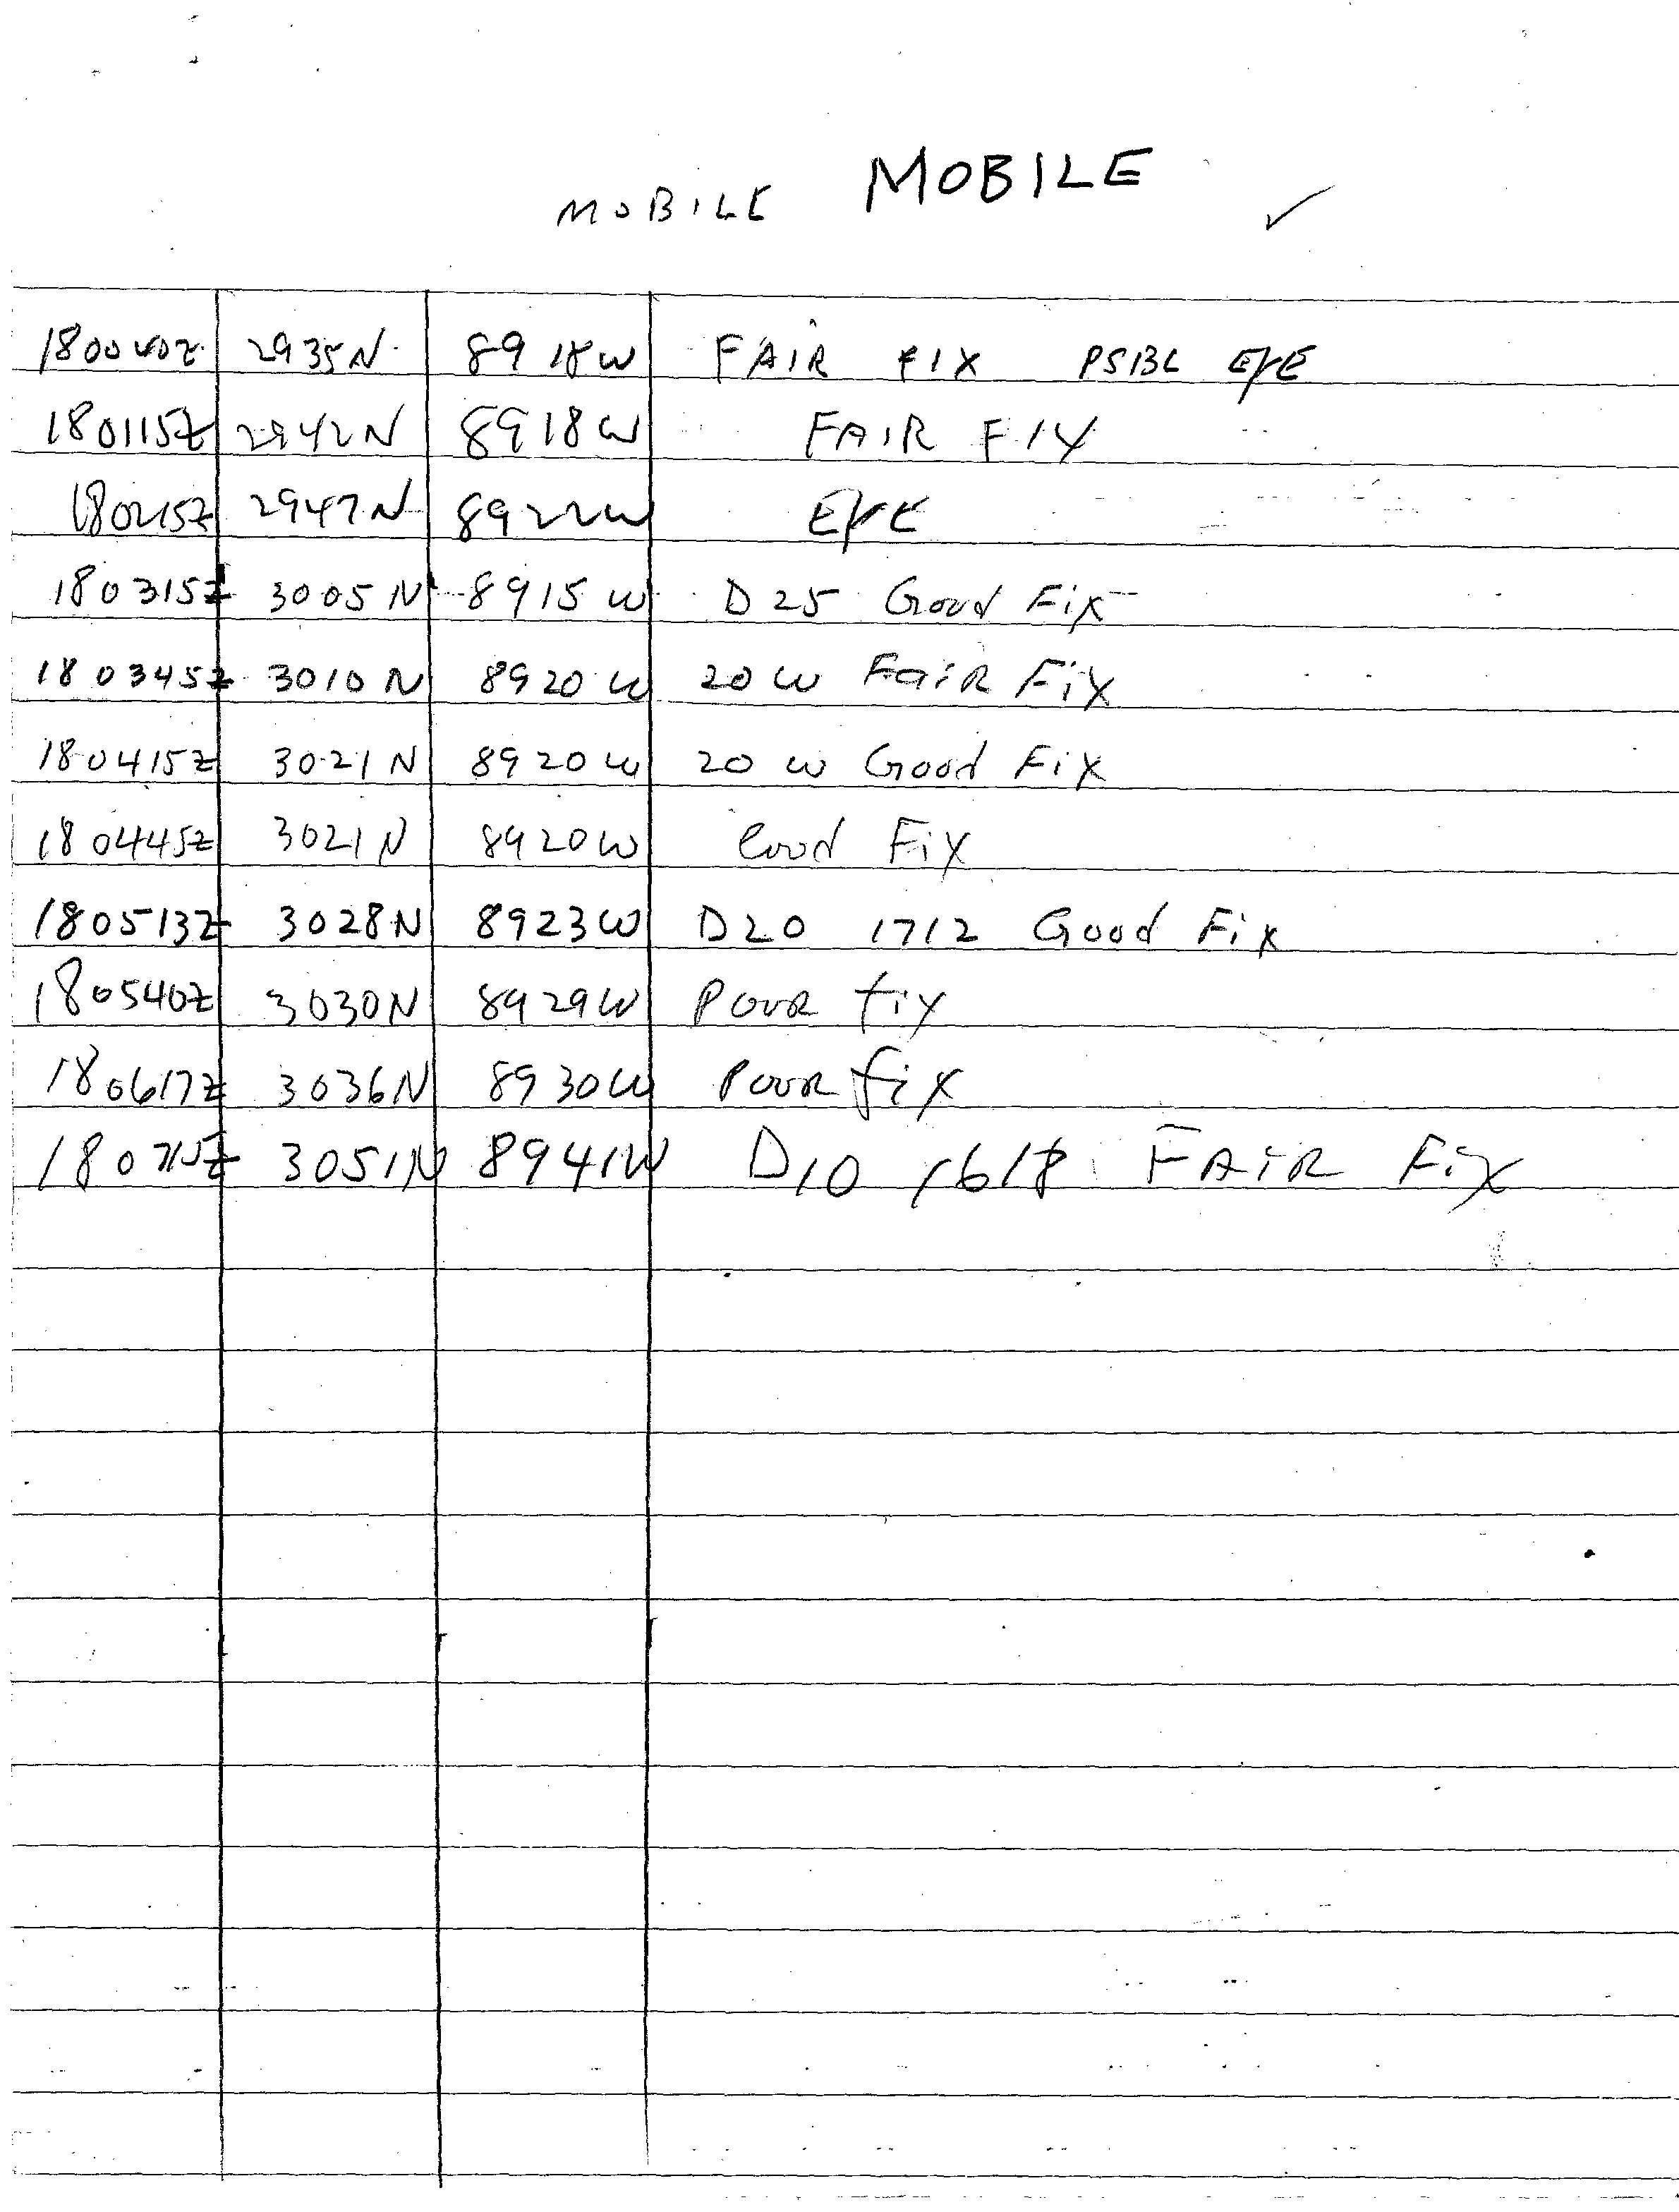 MOBILE MOBILE ✓
180040Z 2935N 8918W FAIR FIX PSBL EYE
180115Z 2942N 8918W FAIR FIX
180215Z 2947N 8922W EYE
180315Z 3005N 8915W D25 Good Fix
180345Z 3010N 8920W 20W FaiR Fix
180415Z 3021N 8920W 20 W Good Fix
180445Z 3021N 8920W Good Fix
180513Z 3028N 8923W D20 1712 Good Fix
180540Z 3030N 8929W POOR fix
180617Z 3036N 8930W POOR fix
180715Z 3051N 8941W D10 1618 FAiR Fix